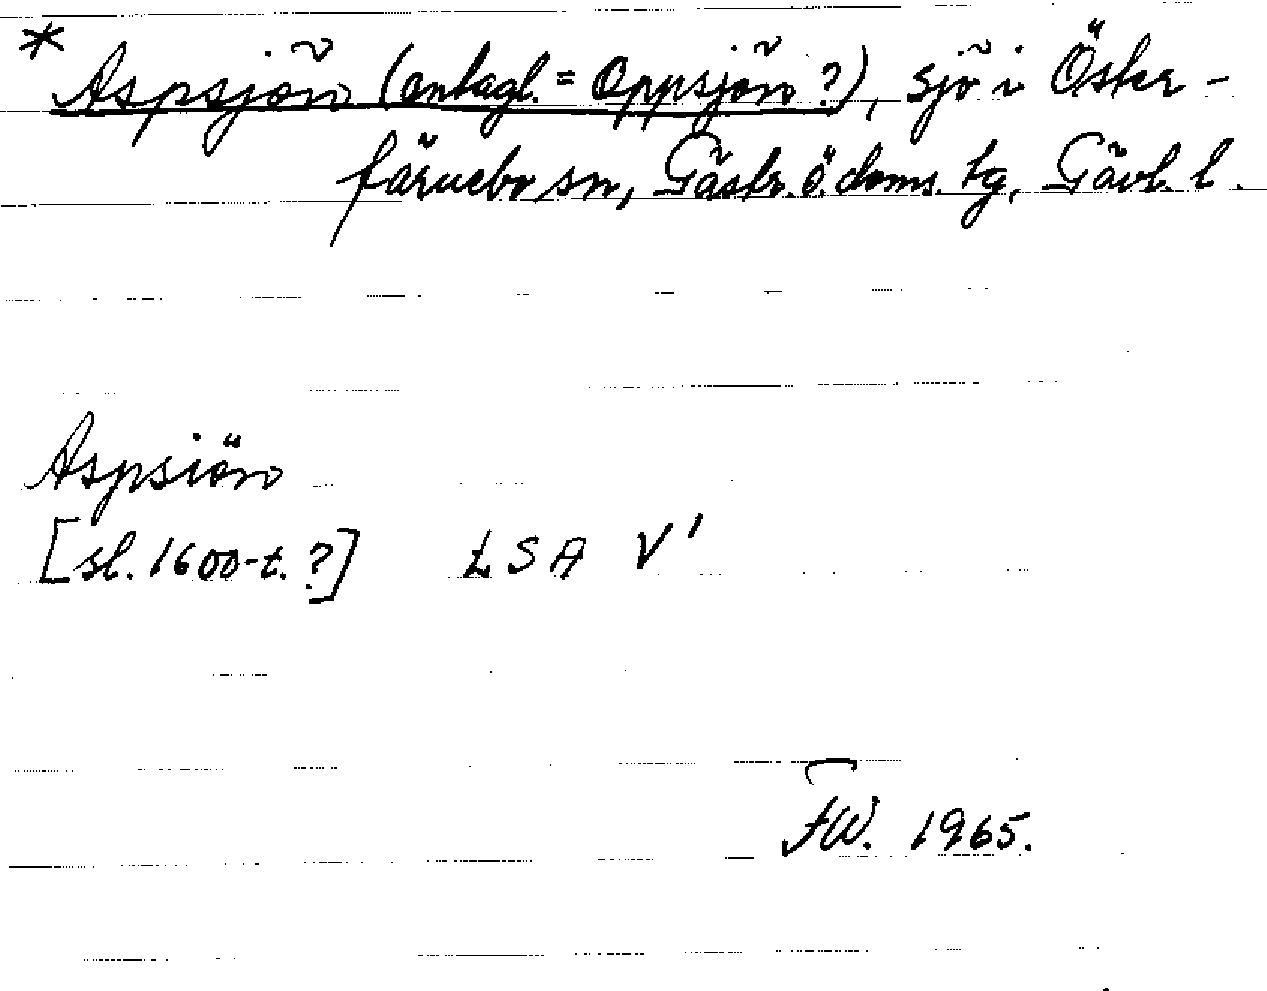 * Aspsjön (antagl. = Oppsjön?), sjö i Öster-
färnebo sn, Gästr. ö. doms. tg, Gävl. l.
Aspsiön
[sl. 1600-t. ?] LSA V¹
FW. 1965.